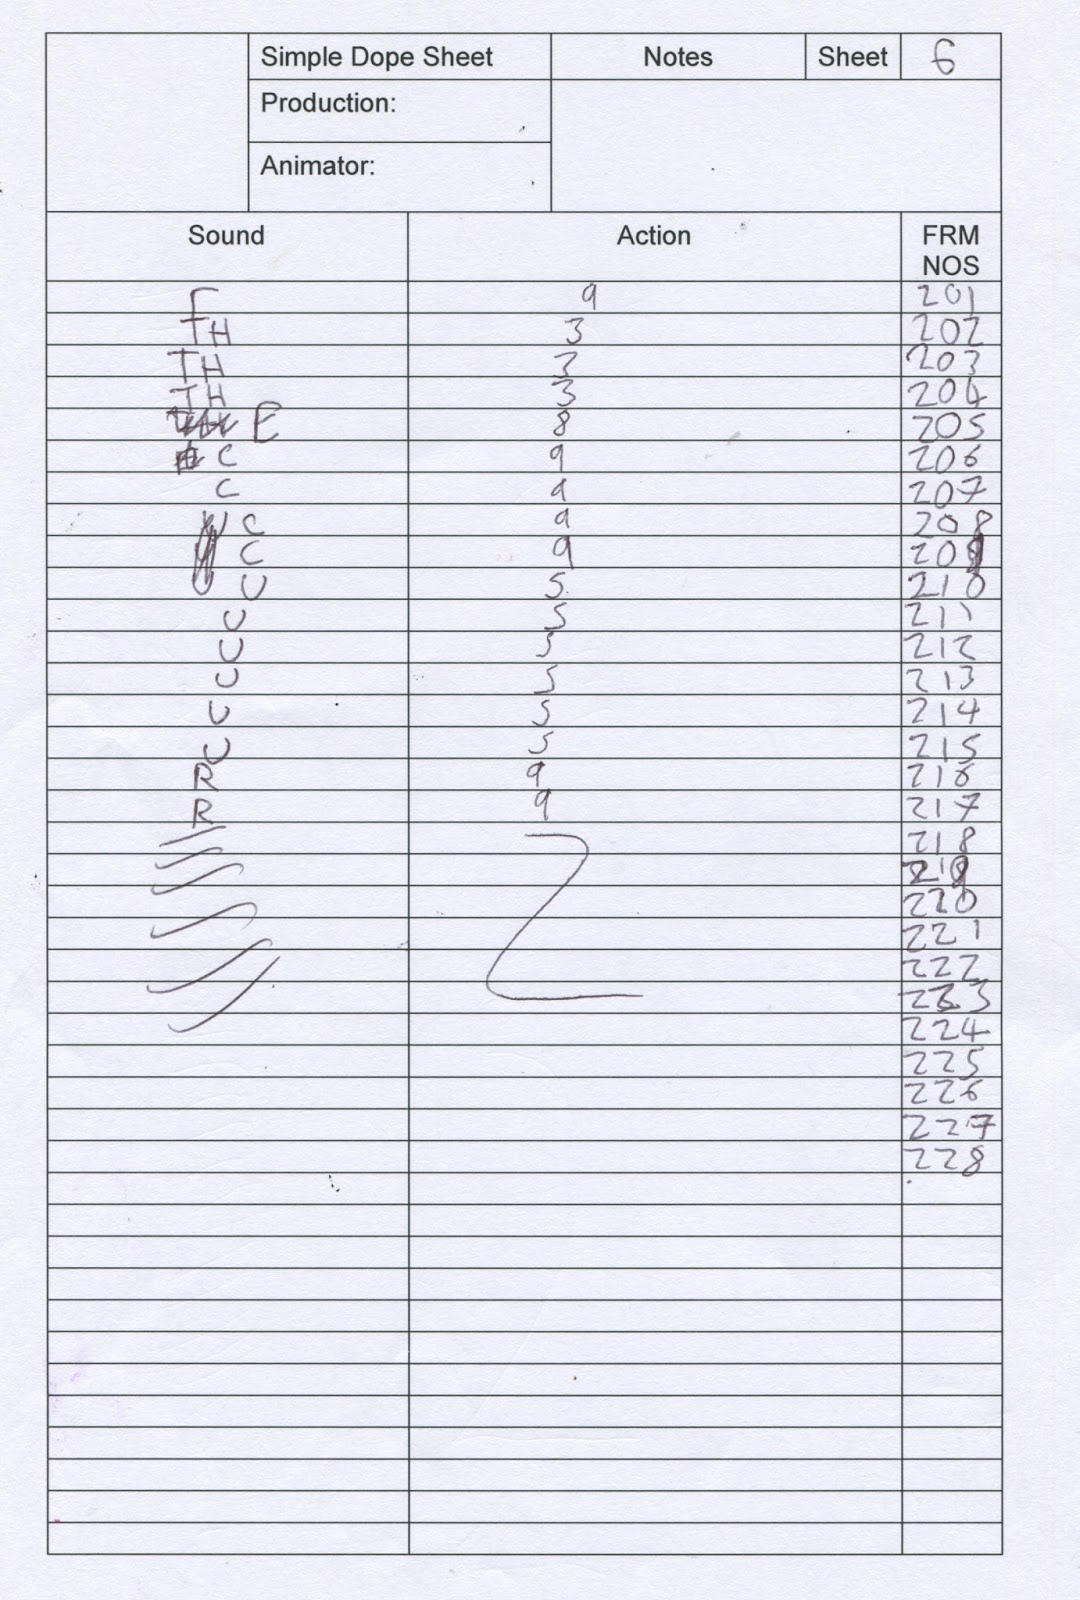 Simple Dope Sheet Notes Sheet 6
Production:
Animator:
Sound Action FRM NOS
F 9 201
TH 3 202
TH 3 203
TH 3 204
E 8 205
C 9 206
C 9 207
C 9 208
C 9 209
U 5 210
U 5 211
U 5 212
U 5 213
U 5 214
U 5 215
R 9 216
R 9 217
218
219
220
221
222
223
224
225
226
227
228